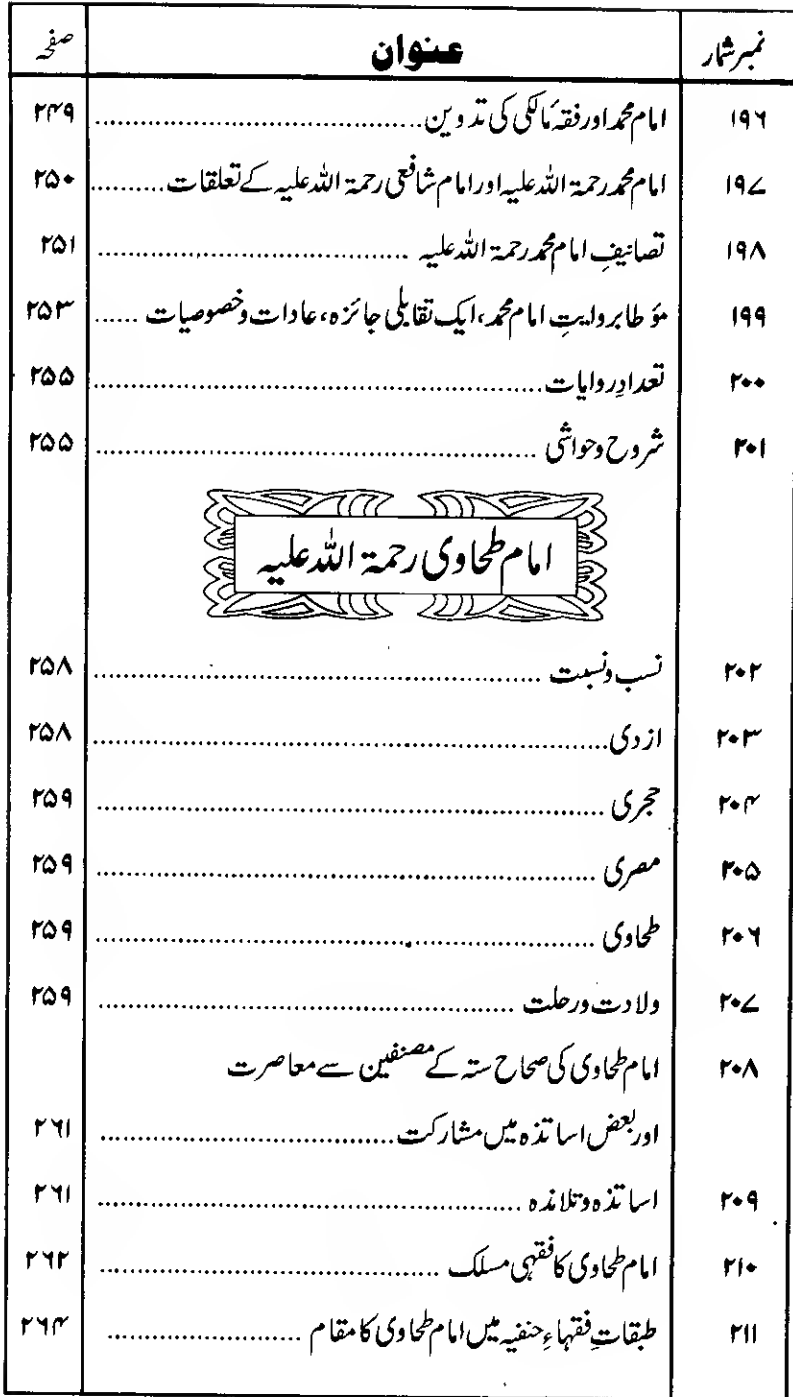 نمبرشمار عنوان صفحہ
۱۹۶ امام محمد اور فقہ مالکی کی تدوین ........ ۲۴۹
۱۹۷ امام محمد رحمۃ اللہ علیہ اور امام شافعی رحمۃ اللہ علیہ کے تعلقات ........ ۲۵۰
۱۹۸ تصانیفِ امام محمد رحمۃ اللہ علیہ ........ ۲۵۱
۱۹۹ مؤطا بروایتِ امام محمد، ایک تقابلی جائزہ، عادات وخصوصیات ...... ۲۵۳
۲۰۰ تعدادِ روایات ........ ۲۵۵
۲۰۱ شروح وحواشی ........ ۲۵۵
امام طحاوی رحمۃ اللہ علیہ
۲۰۲ نسب ونسبت ........ ۲۵۸
۲۰۳ ازدی ........ ۲۵۸
۲۰۴ حجری ........ ۲۵۹
۲۰۵ مصری ........ ۲۵۹
۲۰۶ طحاوی ........ ۲۵۹
۲۰۷ ولادت ورحلت ........ ۲۵۹
۲۰۸ امام طحاوی کی صحاح ستہ کے مصنفین سے معاصرت
اور بعض اساتذہ میں مشارکت ........ ۲۶۱
۲۰۹ اساتذہ وتلاندہ ........ ۲۶۱
۲۱۰ امام طحاوی کا فقہی مسلک ........ ۲۶۲
۲۱۱ طبقاتِ فقہاءِ حنفیہ میں امام طحاوی کا مقام ........ ۲۶۴